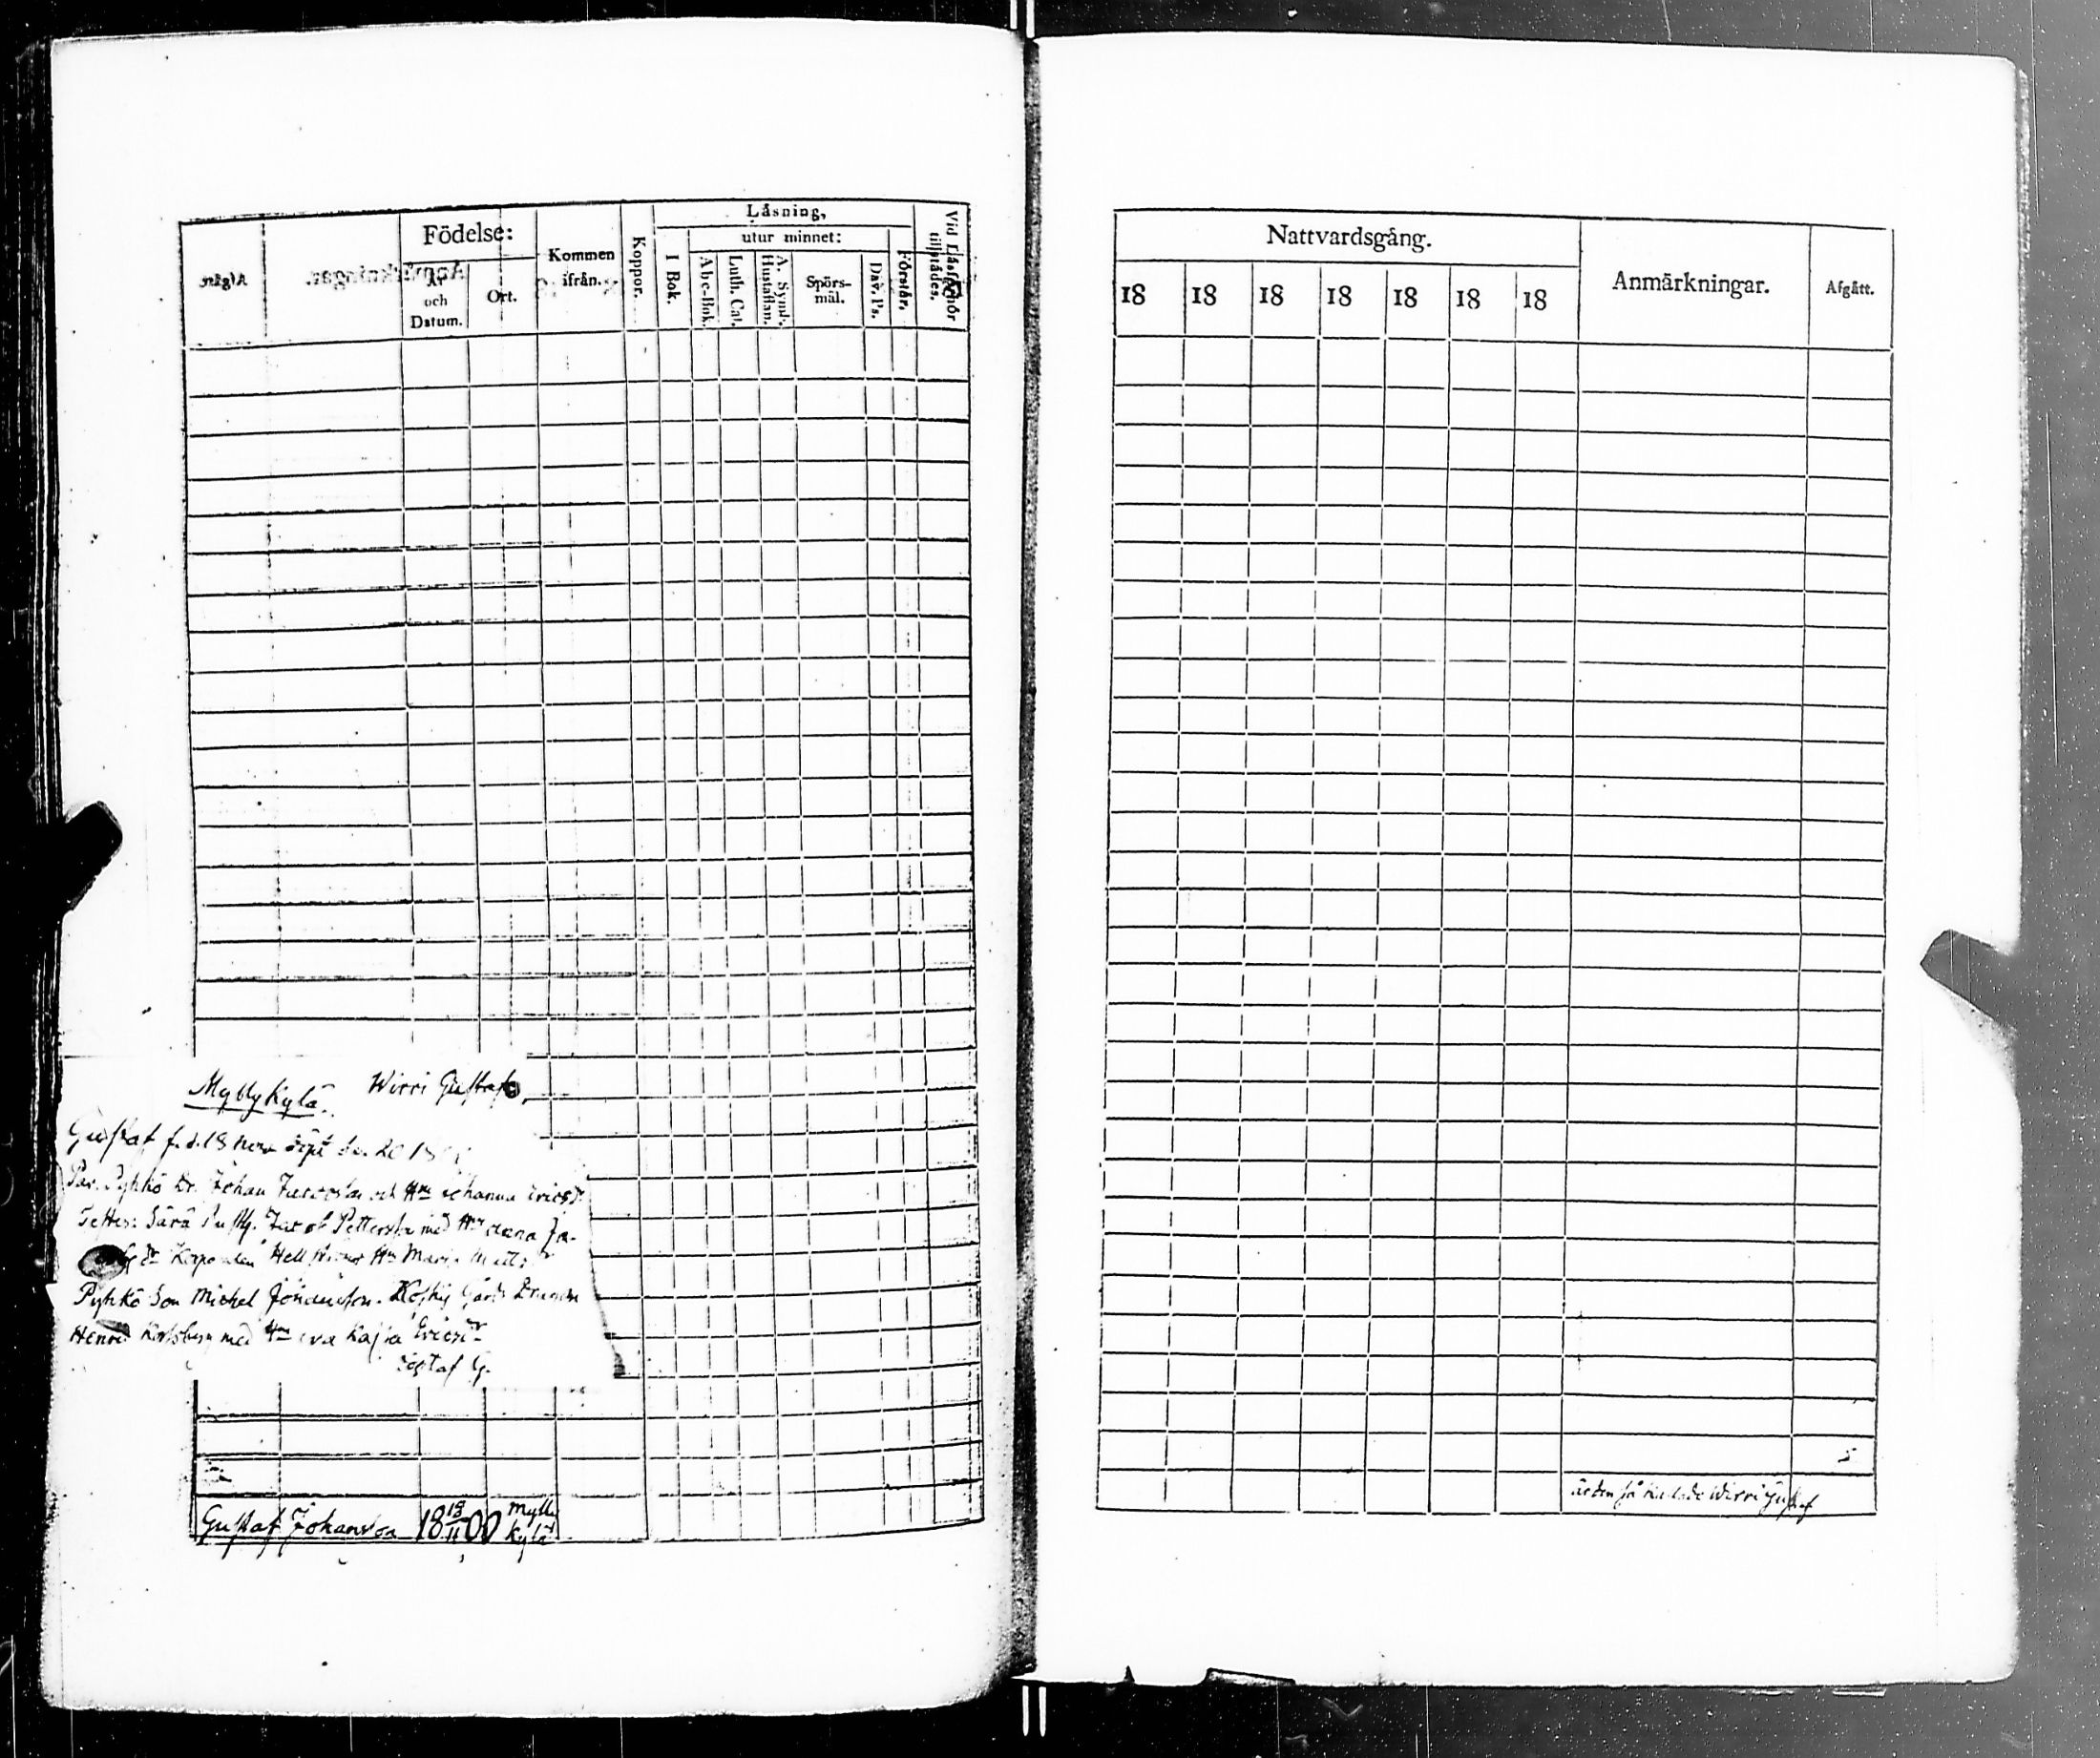 Födelse:
År
och
Datum.
Ort.
Kommen
ifrån.
Koppor.
Läsning,
I Bok.
utur minnet:
Abc-Bok.
Luth. Cat.
A. Symb.
Hustaflan.
Spörs-
mål.
Dav. Ps.
Förstår.
Vid Läsförhör
tillstådes.
Myllykylä. Wirri Gustaf
Gustaf f. d. 18 nov. döpt den 20 18
Par. Pyhkö Dr. Johan och Hru Johanna Ericsdr
Testes: Jacob Pettersson med Hru
Hellströms Hru Maria Matts
Pyhkö Son Michel Johansson. Gårds
Henric Karlsberg med Hru Eva Kajsa Ericsdr
Gustaf Johansson 18 18/11 00 Mylly
kylä
Nattvardsgång.
18 18 18 18 18 18 18
Anmärkningar.
Afgått.
är den så kallade Wirri Gustaf